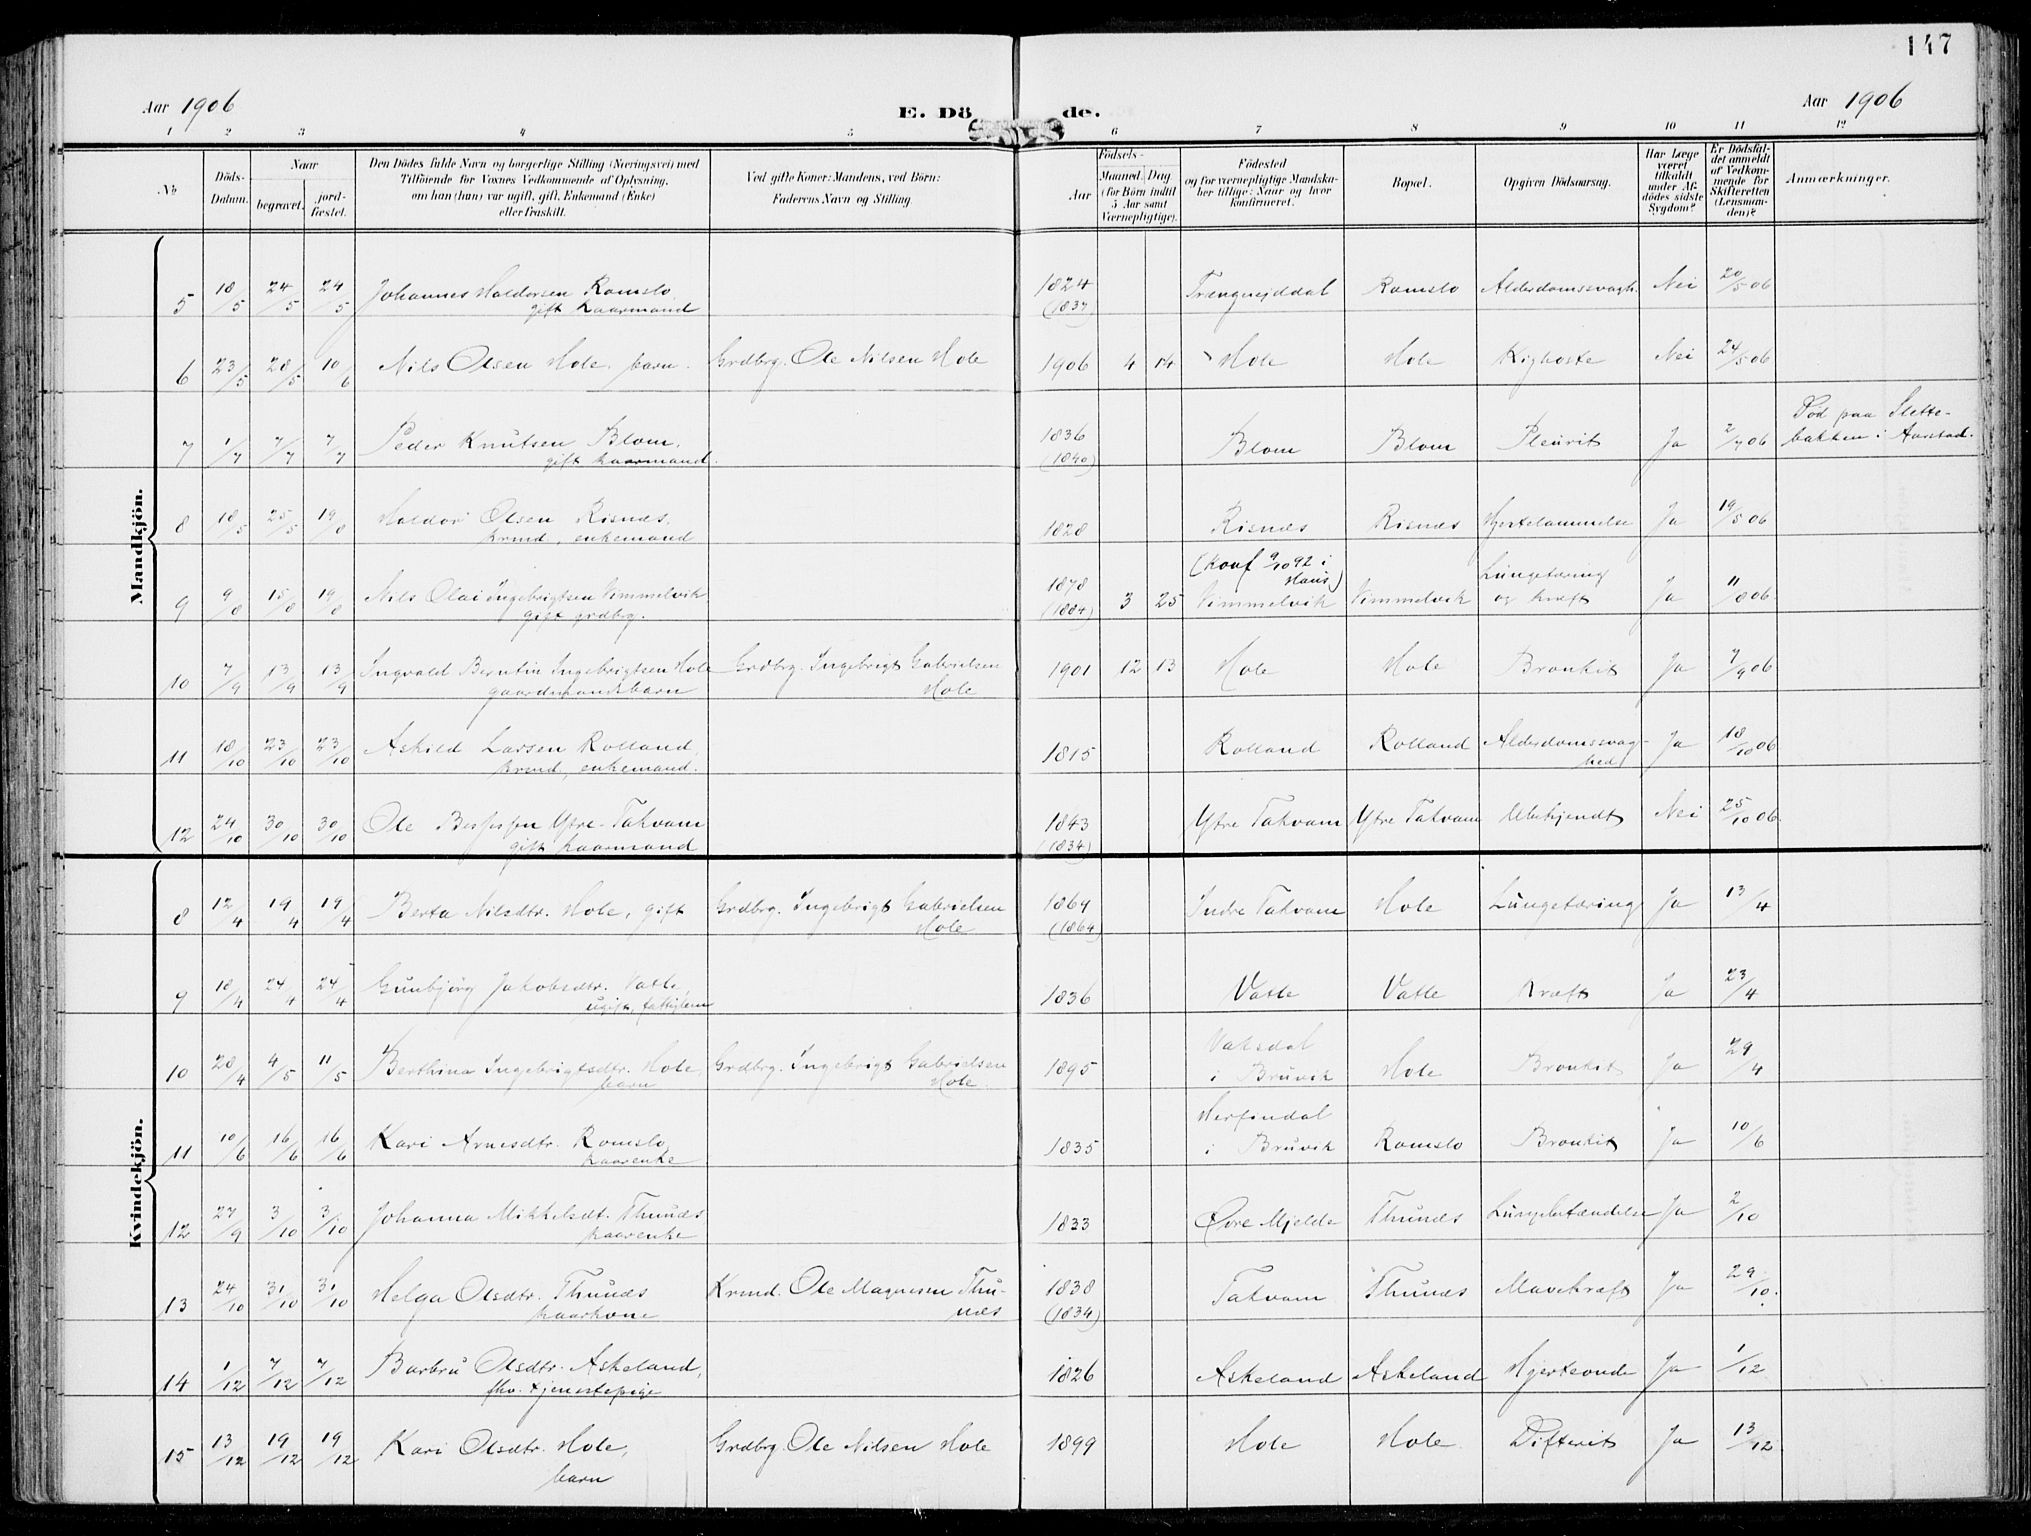 147
Aar 1906
E. Dö de.
Aar 1906
1 2 3 4 5 6 7 8 9 10 11 12
No
Döds-Datum.
Naar begravet. jordfæstet.
Den Dödes fulde Navn og borgerlige Stilling (Næringsvei) med
Tilföiende för Voxnes Vedkommende af Oplysning,
om han (hun) var ugift, gift, Enkemand (Enke)
eller fraskilt.
Ved gifte Koner: Mandens, ved Börn:
Faderens Navn og Stilling.
Födsels-
Aar
Maaned. Dag
(for Börn indtil
5 Aar samt
Værnepligtige).
Födested
og for værnepligtige Mandska-
ber tillige: Naar og hvor
konfirmeret.
Bopæl.
Opgiven Dödsaarsag.
Har Læge
været
tilkaldt
under Af-
dödes sidste
Sygdom?
Er Dödsfal-
det anmeldt
af Vedkom-
mende for
Skifteretten
(Lensman-
den)?
Anmærkninger.
Mandkjön.
5 18/5 24/5 24/5 Johannes Haldorsen Romslo 1824 Trengereiddal Romslo Alderdomssvagh. Nei 20/5 06
gift kaarmand (1837)
6 23/5 28/5 10/6 Nils Olsen Hole. barn. Grdbrg. Ole Nilsen Hole 1906 4 14 Hole Hole Kighoste Nei 24/5 06
7 1/7 7/7 7/7 Peder Knutsen Blom, 1836 Blom Blom Pleurit Ja 2/7 06 Död paa Slette-
gift kaarmand. (1840) bakken i Aarstad.
8 18/5 25/5 19/8 Haldor Olsen Risnæs, 1828 Risnæs Risnæs Hjertelammelse Ja 19/5 06
krmd, enkemand
(Konf 9/10 92 i
Haus)
9 9/8 15/8 19/8 Nils Olai Ingebrigtsen Vimmelvik 1878 3 25 Vimmelvik Vimmelvik Lungetæring og kræft Ja 11/8 06
gift grdbrg. (1884)
10 7/9 13/9 13/9 Ingvald Berntin Ingebrigtsen Hole Grdbrg. Ingebrigt Gabrielsen 1901 12 13 Hole Hole Bronkit Ja 7/9 06
gaardmandsbarn Hole
11 18/10 23/10 23/10 Askild Larsen Rolland, 1815 Rolland Rolland Alderdomssvag- Ja 18/10 06
krmd, enkemand. hed
12 24/10 30/10 30/10 Ole Ytre-Takvam 1843 Ytre Takvam Ytre Takvam Ubekjendt Nei 25/10 06
gift kaarmand (1834)
Kvindekjön.
8 12/4 19/4 19/4 Berta Nilsdtr. Hole, gift Grdbrg. Ingebrigt Gabrielsen 1869 Indre Takvam Hole Lungetæring Ja 13/4
Hole (1864)
9 18/4 24/4 24/4 Gunbjörg Jakobsdtr. Vatle, 1836 Vatle Vatle Kræft Ja 23/4
ugift, fattiglem
10 28/4 4/5 11/5 Berthina Ingebrigtsdtr. Hole, Grdbrg. Ingebrigt Gabrielsen 1895 Vaksdal Hole Bronkit Ja 29/4
barn Hole. i Bruvik
11 10/6 16/6 16/6 Kari Arnesdtr. Romslo 1835 Herfindal Romslo Bronkit Ja 10/6
kaarenke i Bruvik
12 27/9 3/10 3/10 Johanna Mikkelsdt. Thunæs 1833 Övre Mjelde Thunæs Lungebetændelse Ja 2/10
kaarenke
13 24/10 31/10 31/10 Helga Olsdtr. Thunæs Krmd. Ole Magnesen Thu- 1838 Takvam Thunæs Mavekræft Ja 29/10.
kaarkone næs (1834)
14 1/12 7/12 7/12 Barbru Olsdtr. Askeland, 1826 Askeland Askeland Hjerteonde Ja 1/12
fhv. tjenestepige
15 13/12 19/12 19/12 Kari Olsdtr. Hole, Grdbrg. Ole Nilsen Hole 1899 Hole Hole Difterit Ja 13/12
barn